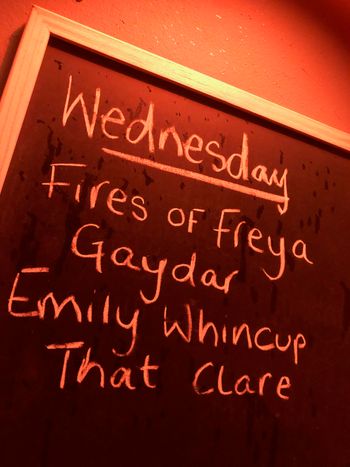 Wednesday
Fires of Freya
Gaydar
Emily Whincup
That Clare